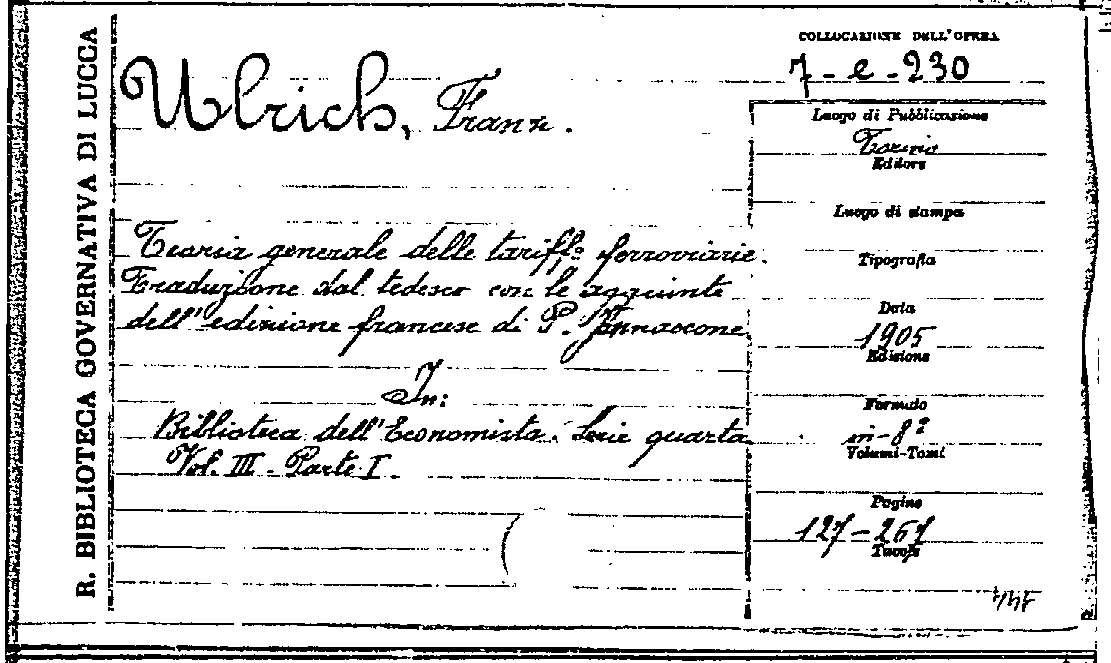 R. BIBLIOTECA GOVERNATIVA DI LUCCA
Ulrich, Franz.
Teoria generale delle tariffe ferroviarie.
Traduzione dal tedesco con le aggiunte
dell'edizione francese di P. Jannaccone
In:
Biblioteca dell'Economista. Serie quarta
Vol. III - Parte I.
COLLOCAZIONE DELL'OPERA
7 - e - 230
Luogo di Pubblicazione
Torino
Editore
Luogo di stampa
Tipografia
Data
1905
Edizione
Formato
in-8º
Volumi-Tomi
Pagine
127-267
Tavole